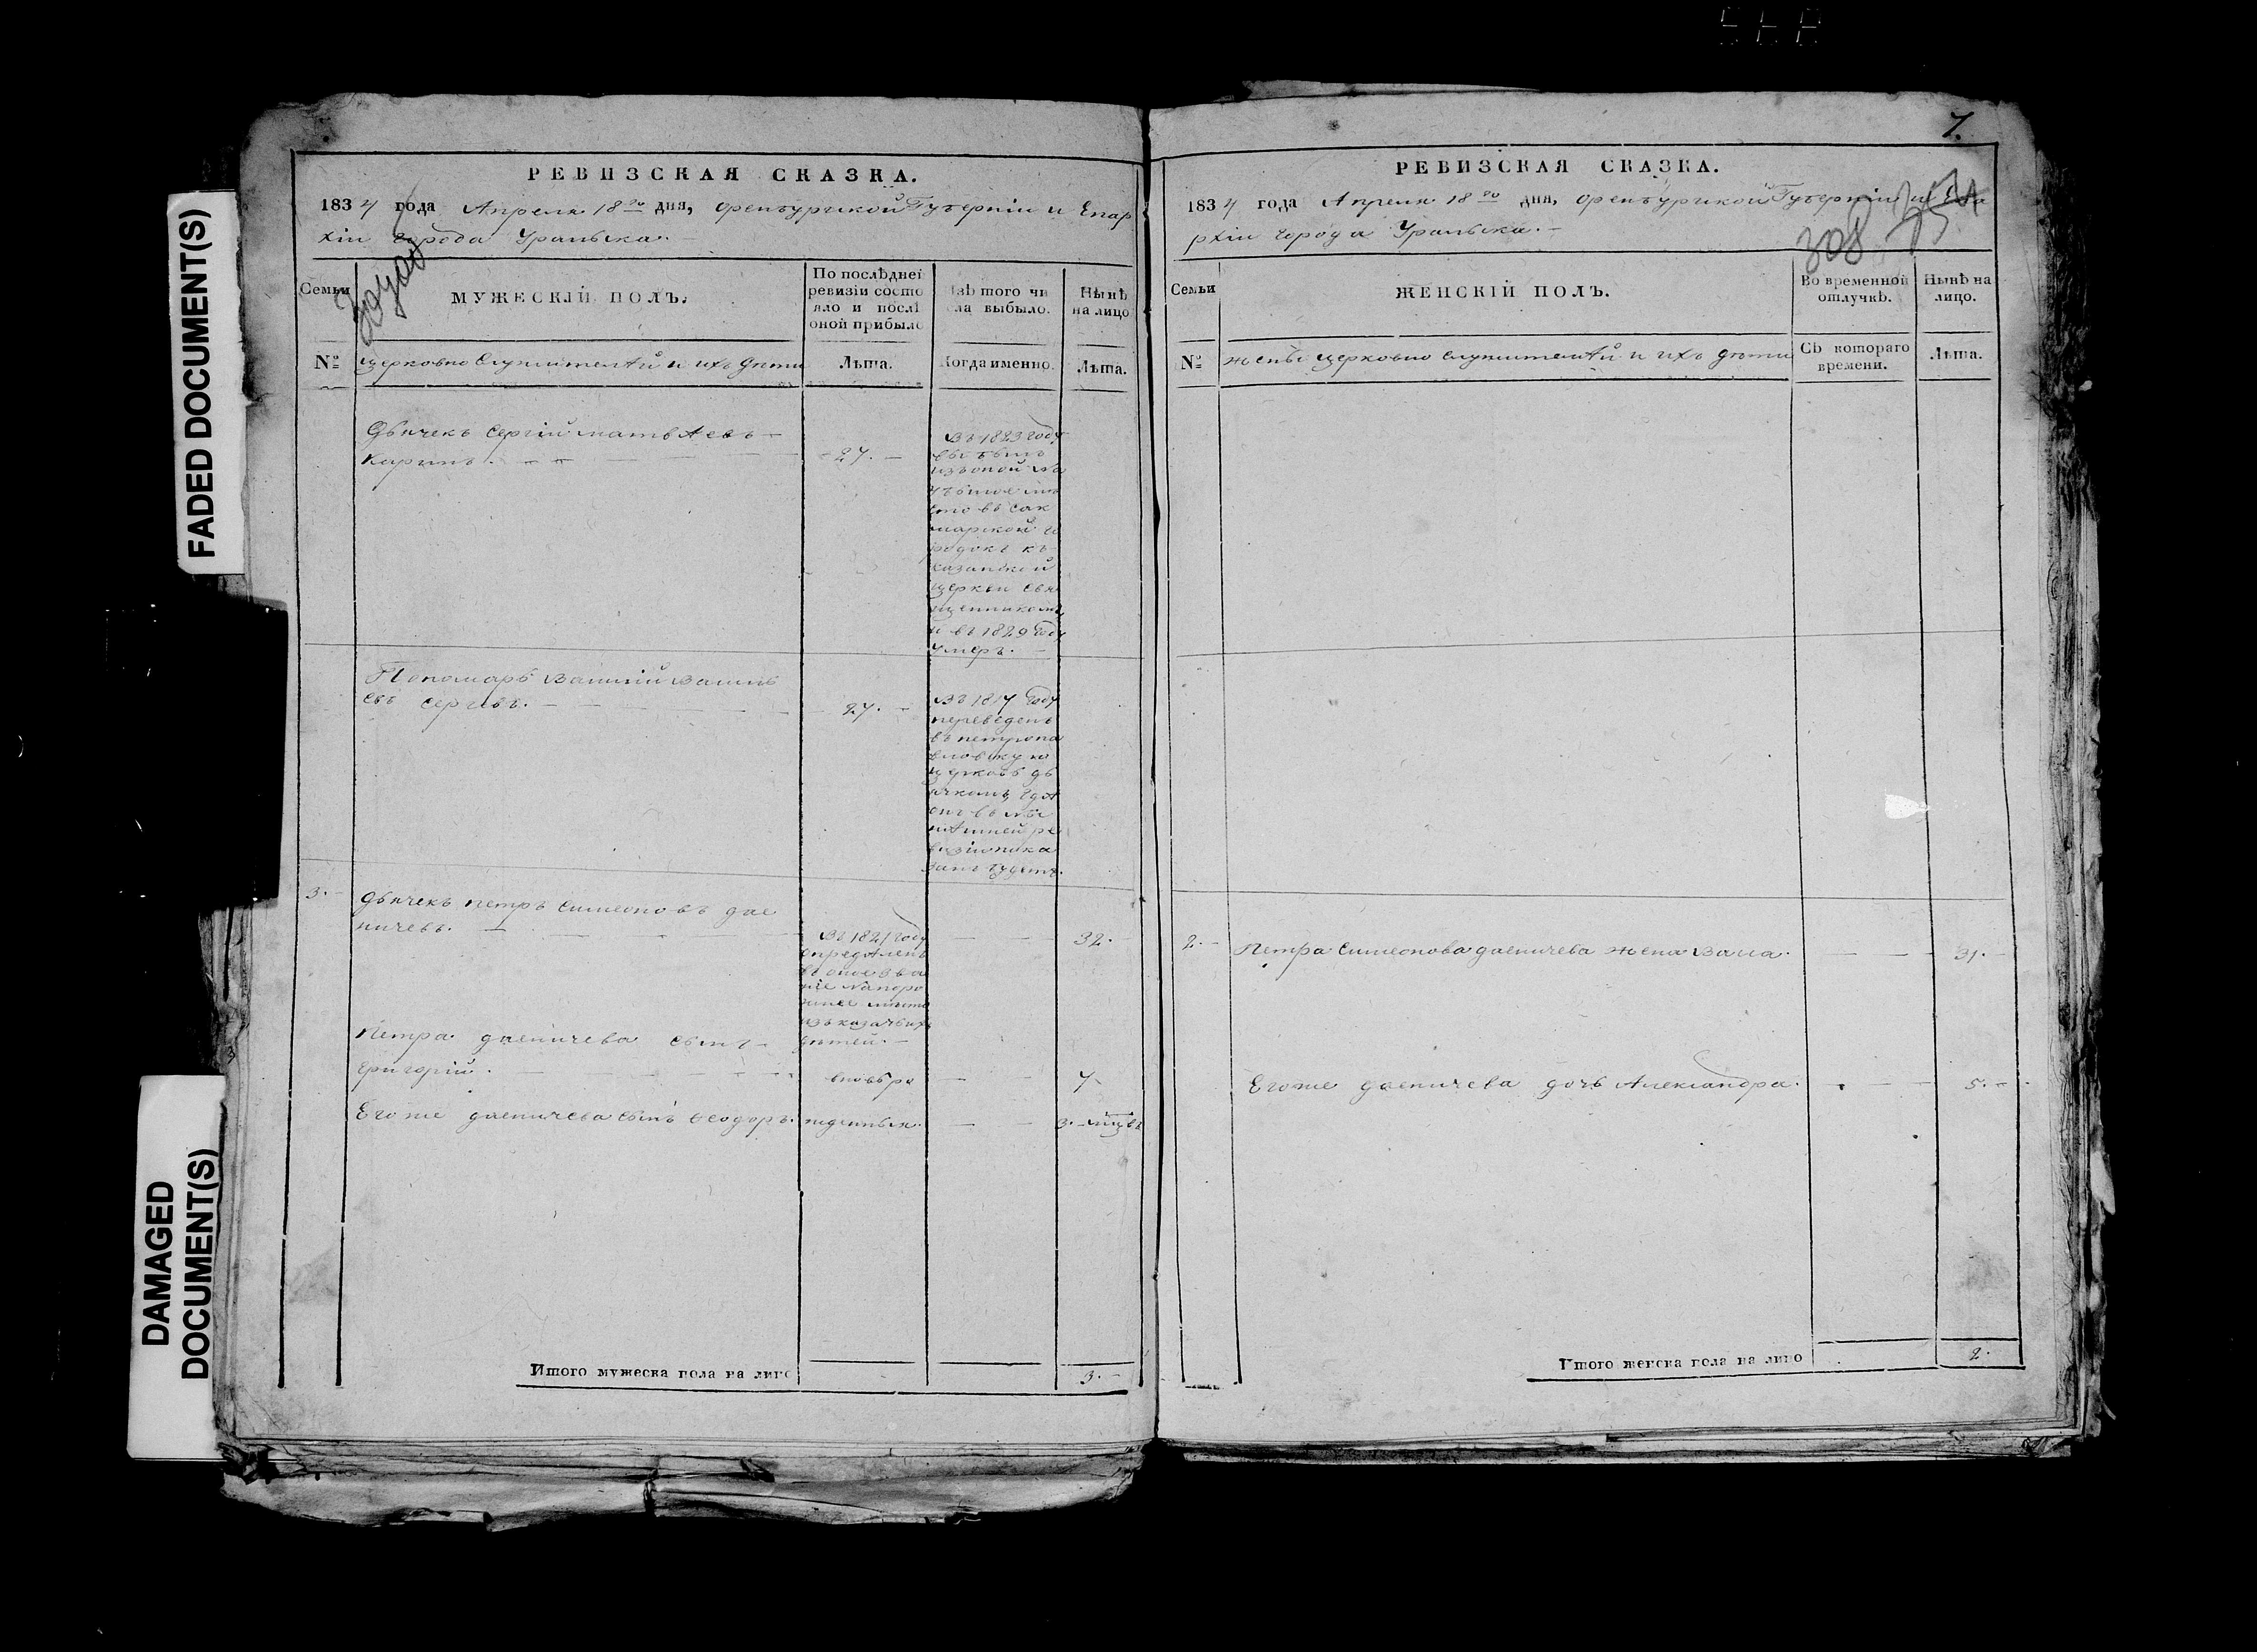 FADED DOCUMENT(S)
DAMAGED
DOCUMENT(S)
РЕВИЗСКАЯ СКАЗКА.
1834 года Апреля 18го дня, Оренбургской Губерніи и Епар
хіи города Уральска.
Семьи
МУЖЕСКІЙ ПОЛЪ.
По послѣдней
ревизіи состо
яло и послѣ
оной прибыло
Изъ того чи
сла выбыло.
Нынѣ
на лицо
№
церковно служителѣй и ихъ дѣти
Лѣта.
Когда именно.
Лѣта.
Дьячекъ Сергій Матвѣевъ
Каринъ.
27.
Въ 1823 году
выбылъ
изъ оной на
ето въ Сак
марской го
родокъ къ
казанской
церкви свя
щенникомъ
и въ 1829 году
умеръ.
Пономарь Василій Василь
евъ Сергѣвъ.
27.
Въ 1817 году
переведенъ
въ петропа
вловскую
церковь дь
ячкомъ, гдѣ
онъ въ ны
нѣшней ре
визіи пока
занъ будетъ.
3.
Дьячекъ петръ Симеоновъ дае
ничевъ.
Въ 1821 году
опредѣленъ
въ оное зва
ніе на поро
жнее место
изъ казачьихъ
дѣтей.
32.
Петра даеничева сынъ
григорій.
вновь ро
7.
Егоже даеничева сынъ Ѳеодоръ.
жденныя.
3. мцвъ
Итого мужеска пола на лицо
3.
7.
РЕВИЗСКАЯ СКАЗКА.
1834 года Апреля 18го дня, Оренбургской Губерніи и Епа
рхіи города Уральска.
308
Семьи
ЖЕНСКІЙ ПОЛЪ.
Во временной
отлучкѣ.
Нынѣ на
лицо.
№
жены церковно служителѣй и ихъ дѣти
Съ котораго
времени.
Лѣта.
2.
Петра Симеонова даеничева жена Васса.
31.
Егоже даеничева дочь Александра.
5.
Итого женска пола на лицо
2.